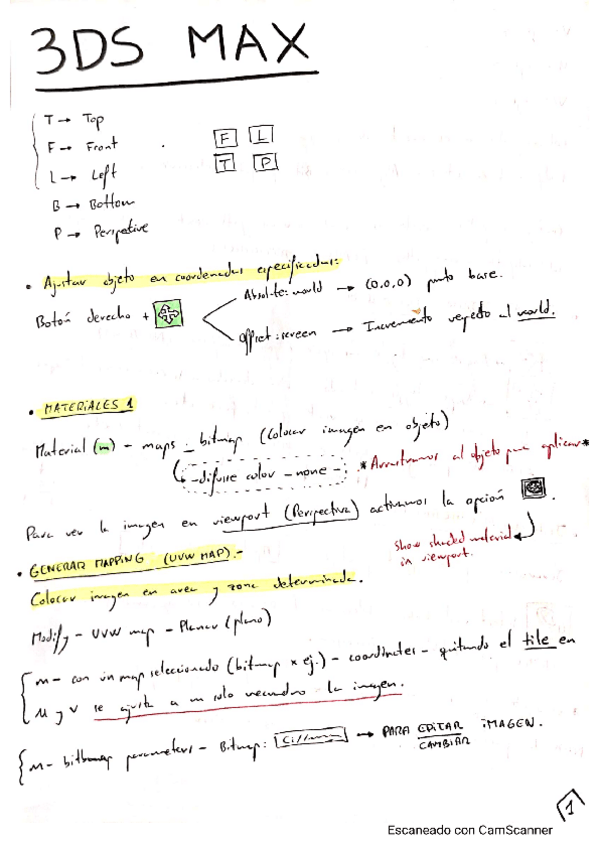 3DS MAX
T → Top
F → Front
F L
L → Left
T P
B → Bottom
P → Perspective
• Ajustar objeto en coordenadas especificadas:
Absolute: world → (0,0,0) punto base.
Botón derecho +
Offset: screen → Incremento respecto al world.
• MATERIALES 1
Material (m) - maps - bitmap (Colocar imagen en objeto)
-difuse color - none - * Arrastramos al objeto para aplicar *
Para ver la imagen en viewport (Perspectiva) activamos la opción .
Show shaded material
in viewport.
• GENERAR MAPPING (UVW MAP).-
Colocar imagen en area y zona determinada.
Modify - UVW map - Planar (plano)
m - con un map seleccionado (bitmap x ej.) - coordinates - quitando el tile en
U y V se ajusta a un solo recuadro la imagen.
m - bitbmap parameters - Bitmap: → PARA EDITAR IMAGEN.
CAMBIAR
1
Escaneado con CamScanner